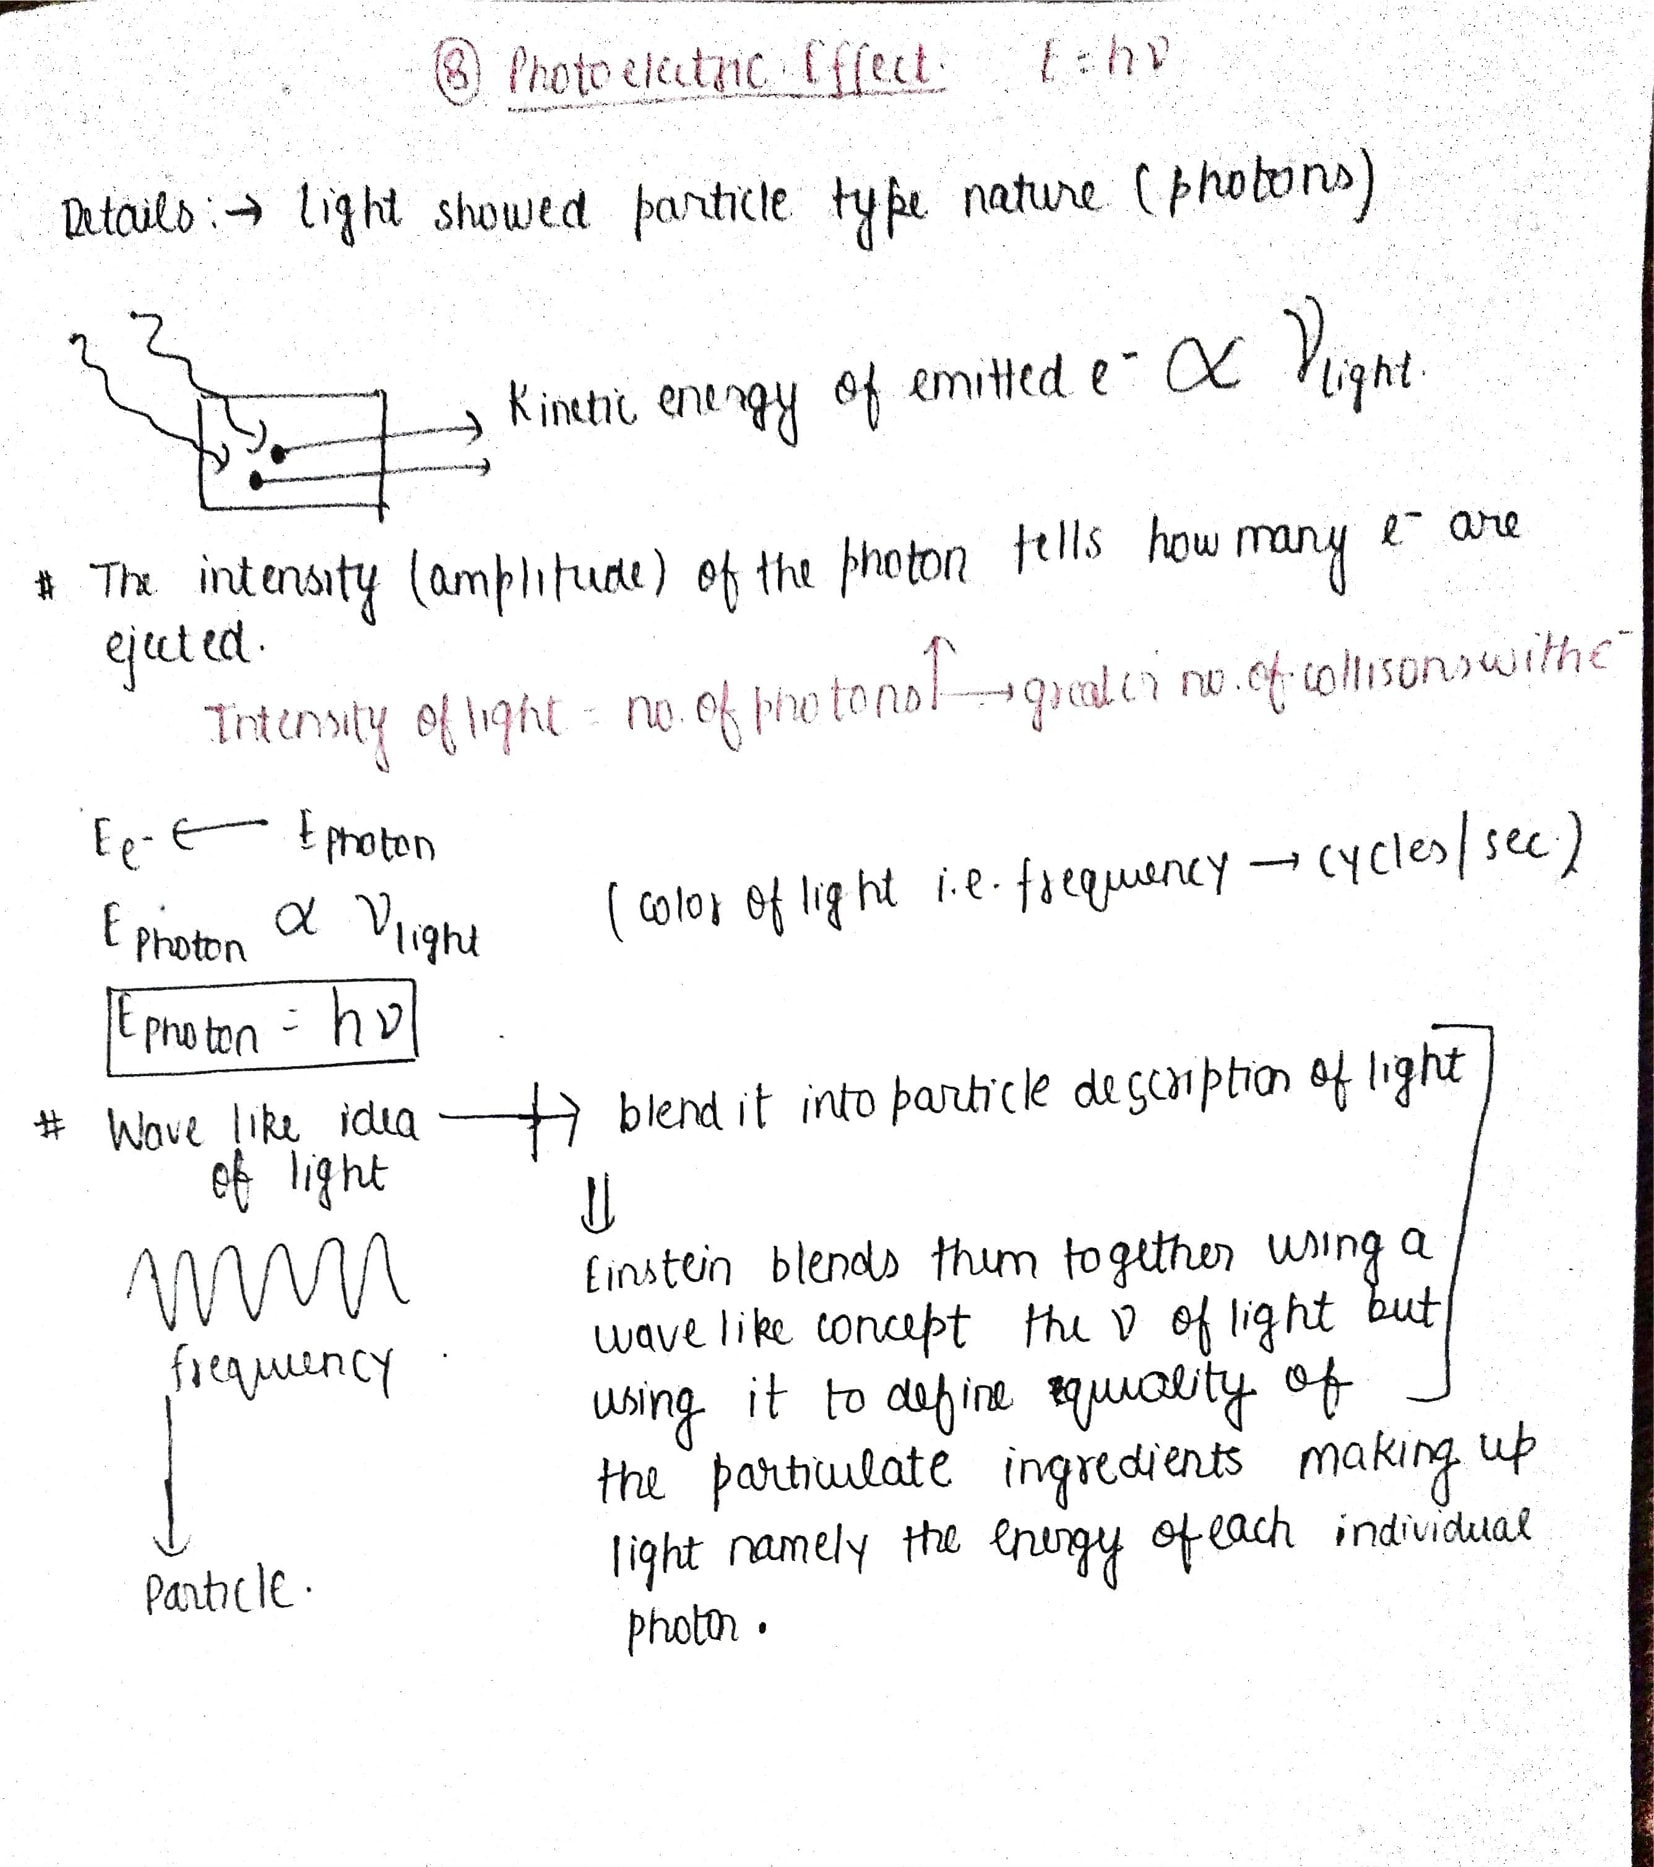 ⑧ Photoelectric Effect. E = hν
Details :→ light showed particle type nature (photons)
Kinetic energy of emitted e⁻ ∝ ν light.
# The intensity (amplitude) of the photon tells how many e⁻ are
ejected.
Intensity of light = no. of photons↑ → greater no. of collisons with e⁻
E e⁻ ← E photon
E photon ∝ ν light (color of light i.e. frequency → cycles/sec.)
E photon = hν
# Wave like idea → blend it into particle description of light
of light
⇓
Einstein blends them together using a
wave like concept the ν of light but
using it to define equality of
the particulate ingredients making up
light namely the energy of each individual
photon.
frequency
Particle.